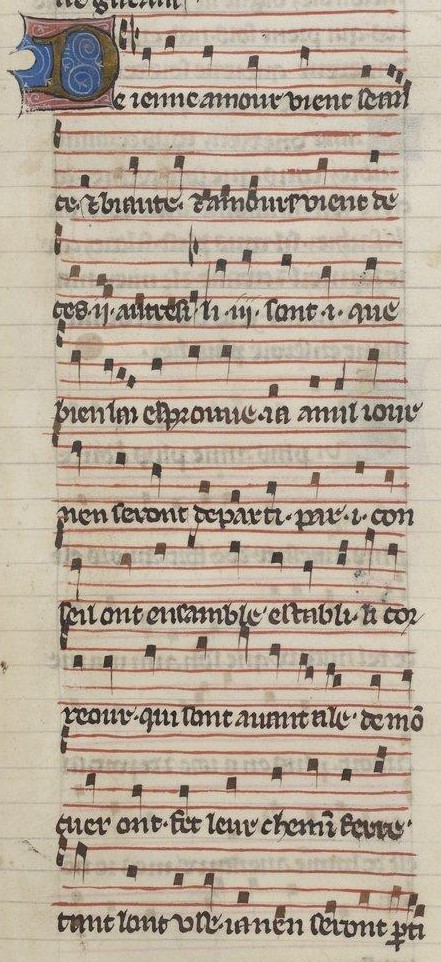 De ienne amour vient sean
ce. ⁊ biaute. ⁊ amours vient de
ces .ii. autresi. li .iii. sont .i. que
bien lai esprouue. ia a nul iour
nen seront departi. par .i. con
seil ont ensamble establi. li cor
reour. qui sont auant ale. de mō
cuer ont. fet leur chemī ferre.
tant lont vse. ia nen seront ꝑti